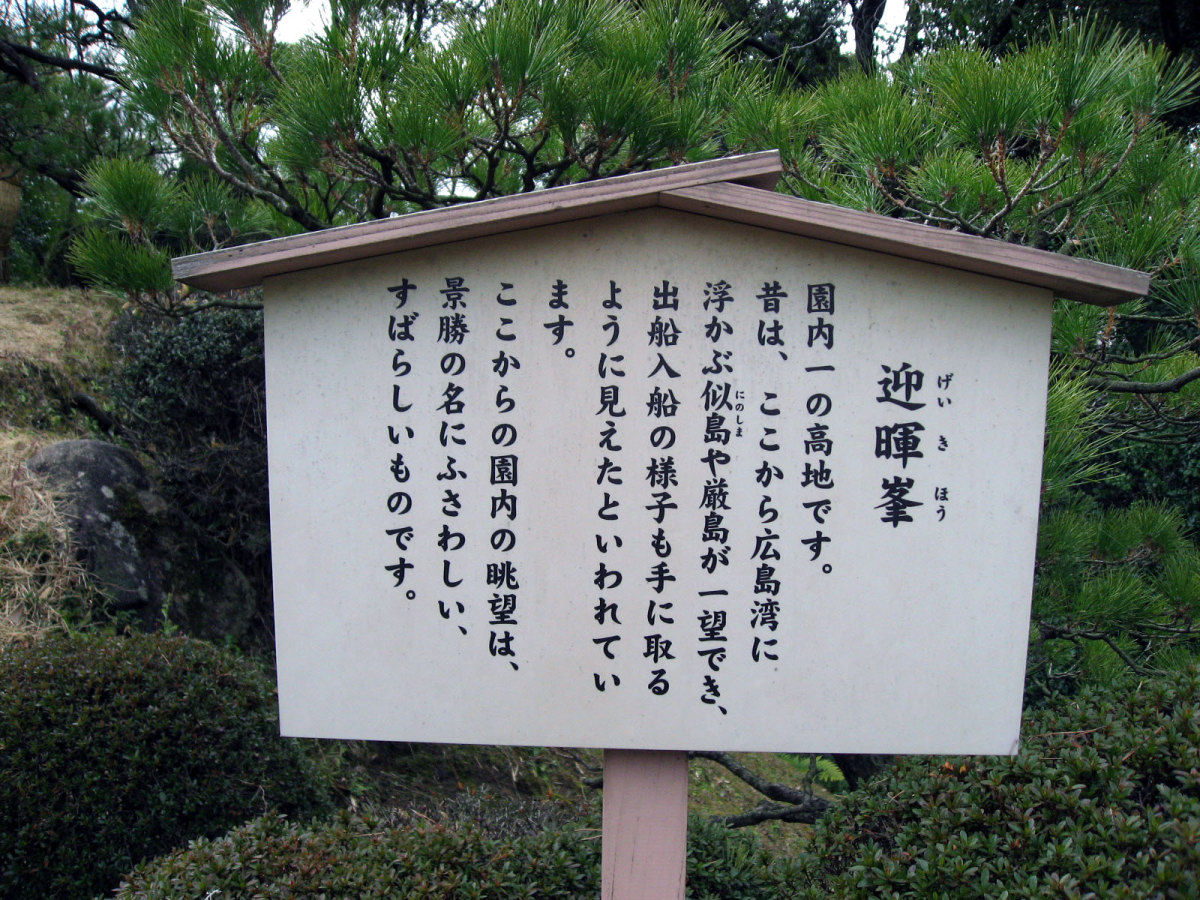 迎暉峯
げいきほう
園内一の高地です。
昔は、ここから広島湾に
浮かぶ似島や厳島が一望でき、
にのしま
出船入船の様子も手に取る
ように見えたといわれてい
ます。
ここからの園内の眺望は、
景勝の名にふさわしい、
すばらしいものです。